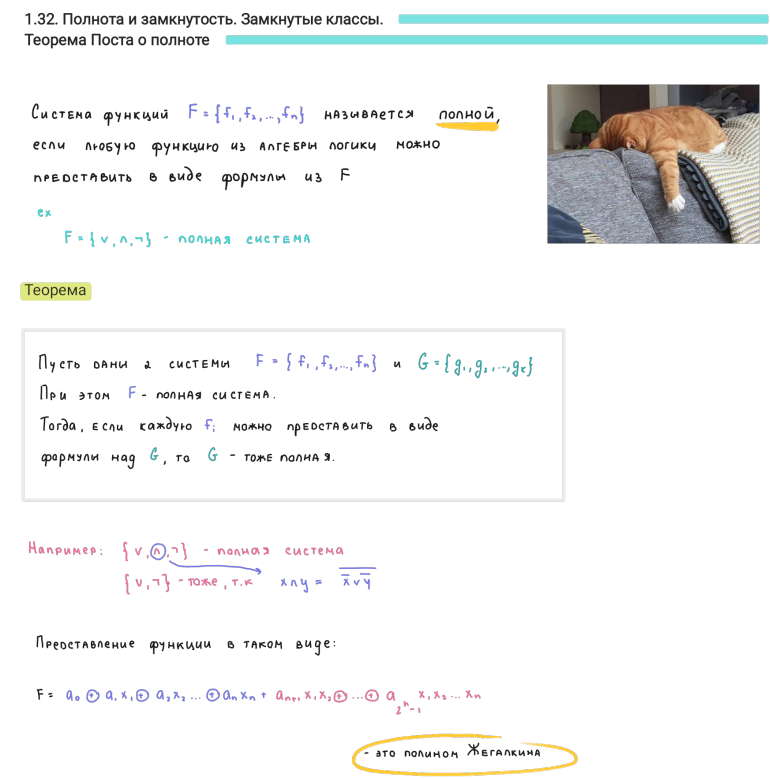 1.32. Полнота и замкнутость. Замкнутые классы.
Теорема Поста о полноте
Система функций F = {f₁, f₂, ..., fₙ} называется полной,
если любую функцию из алгебры логики можно
представить в виде формулы из F
ex
F = {∨, ∧, ¬} - полная система
Теорема
Пусть даны 2 системы F = {f₁, f₂, ..., fₙ} и G = {g₁, g₂, ..., gₖ}
При этом F - полная система.
Тогда, если каждую fᵢ можно представить в виде
формулы над G, то G - тоже полная.
Например: {∨, ∧, ¬} - полная система
{∨, ¬} - тоже, т.к x∧y = \overline{\overline{x}∨\overline{y}}
Представление функции в таком виде:
F = a₀ ⊕ a₁x₁ ⊕ a₂x₂ ... ⊕ aₙxₙ + aₙ₊₁x₁x₂ ⊕ ... ⊕ a_{2ⁿ-1} x₁x₂...xₙ
- это полином Жегалкина